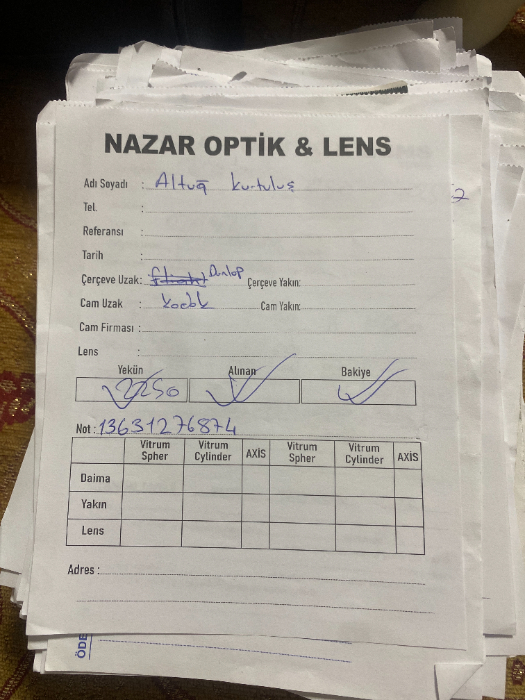 NAZAR OPTİK & LENS
Adı Soyadı : Altuğ Kurtuluş
Tel. :
Referansı :
Tarih :
Çerçeve Uzak: Dunlop Çerçeve Yakın:
Cam Uzak : Cam Yakın:
Cam Firması :
Lens :
Yekün Alınan Bakiye
2250
Not : 13631276874
Vitrum Spher Vitrum Cylinder AXİS Vitrum Spher Vitrum Cylinder AXİS
Daima
Yakın
Lens
Adres :
ÖDE
2